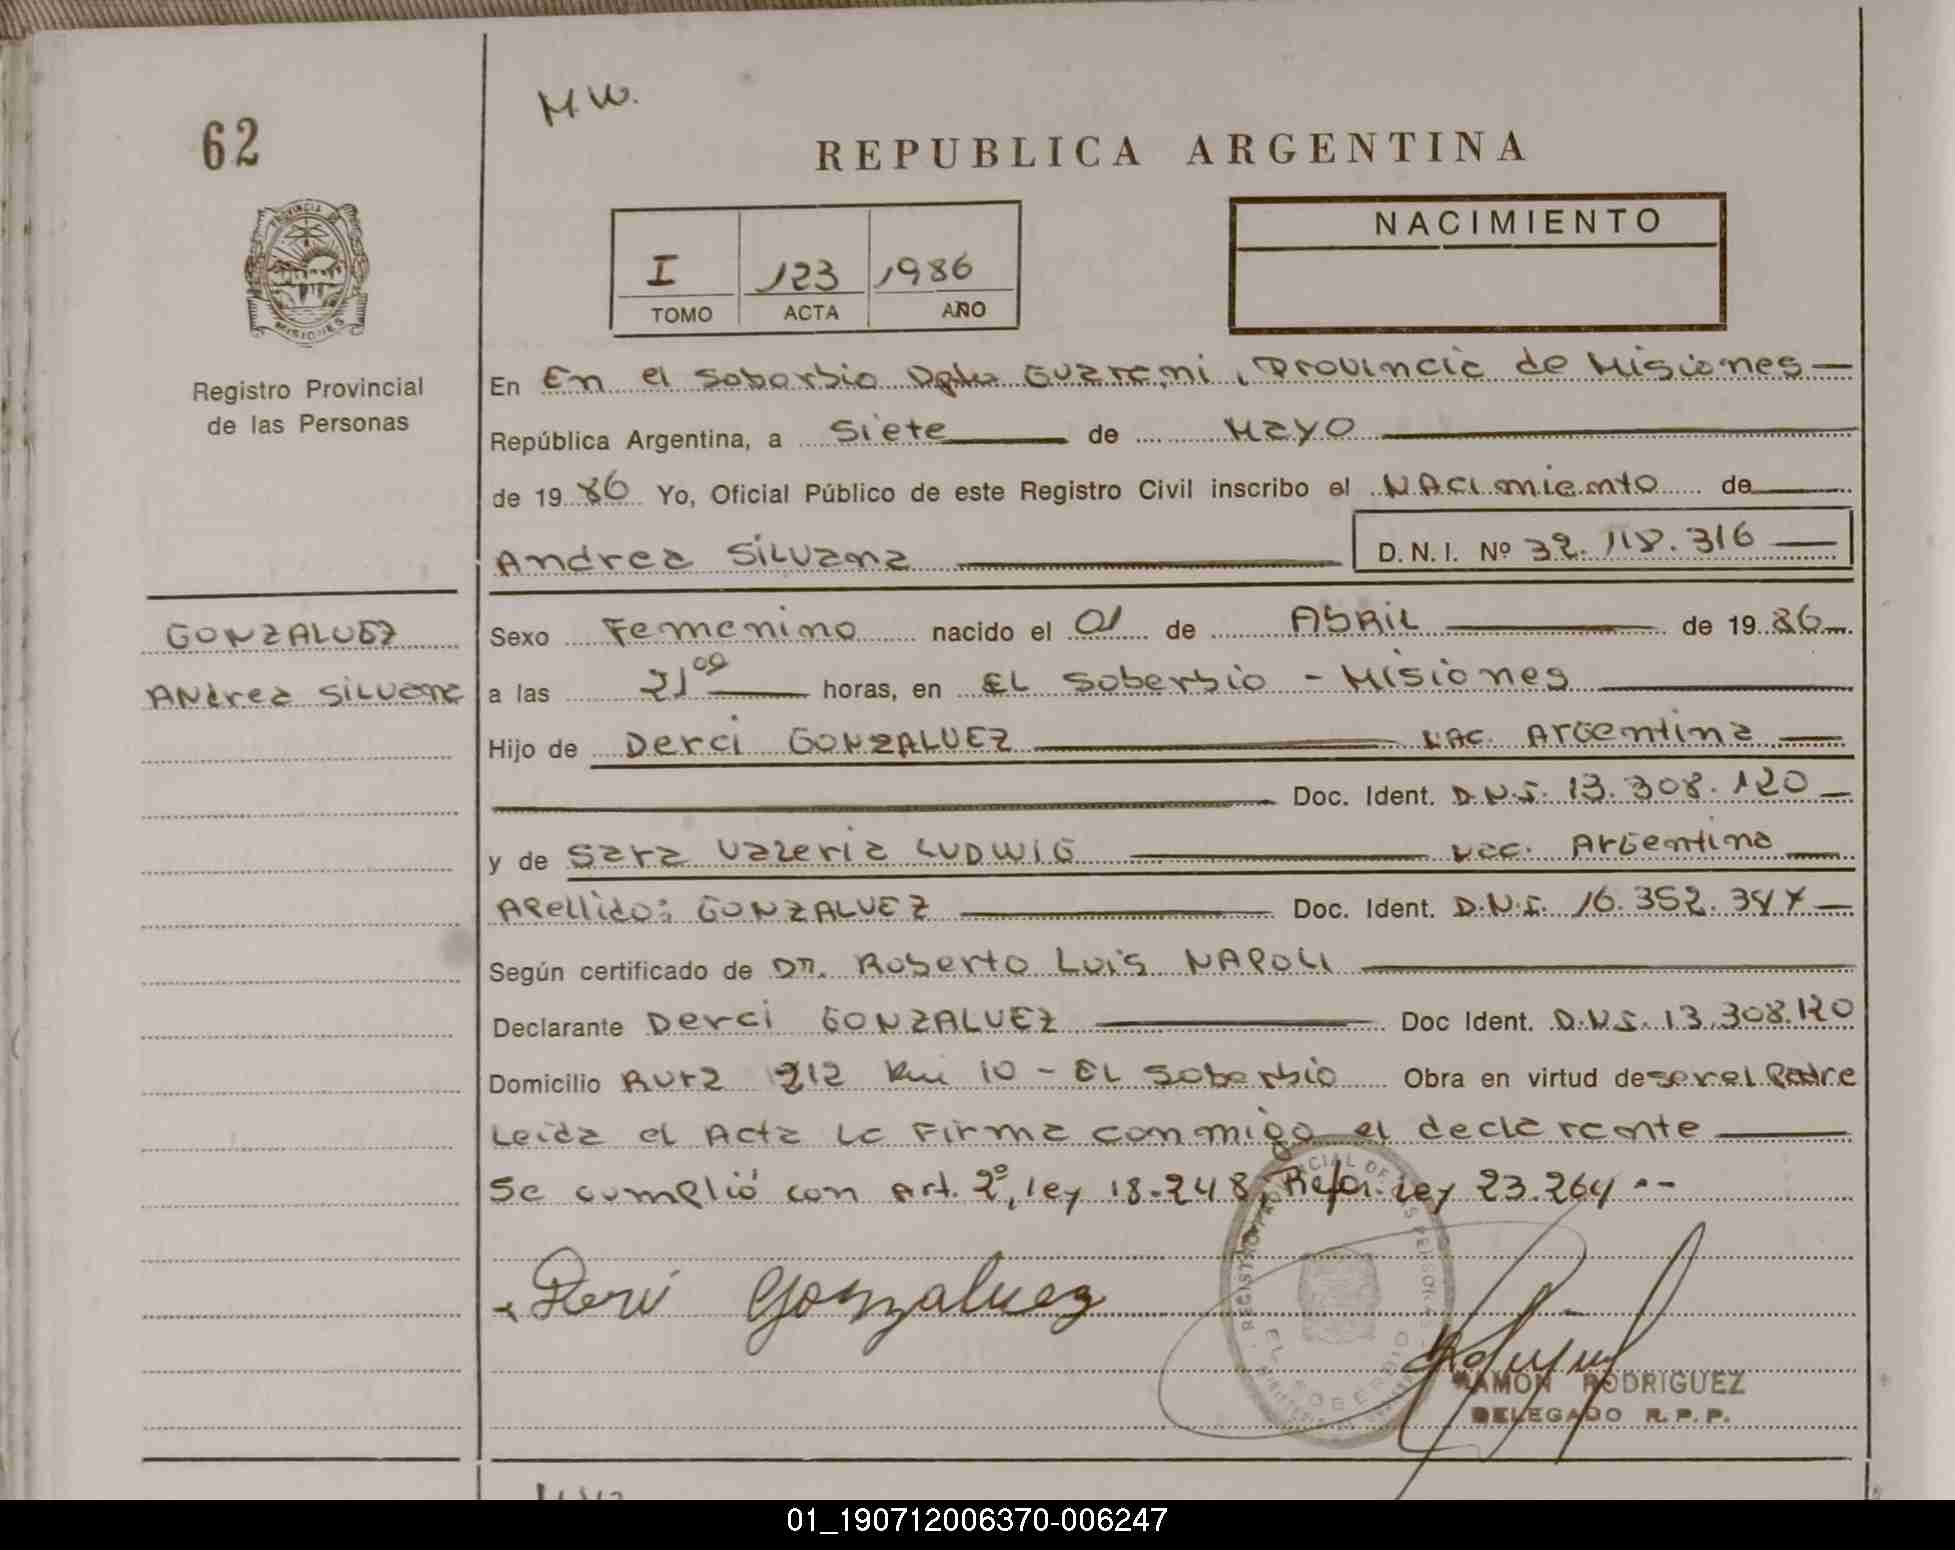 M W.
62
REPUBLICA ARGENTINA
PROVINCIA DE
MISIONES
I 123 1986
TOMO ACTA AÑO
NACIMIENTO
Registro Provincial
de las Personas
En En el Soberbio Dpto Guarani, Provincia de Misiones —
República Argentina, a Siete de Mayo
de 19 86 Yo, Oficial Público de este Registro Civil inscribo el NACimiento de
Andrea Silvana D. N. I. Nº 32.118.316 —
GONZALUEZ
Andrea Silvana
Sexo Femenino nacido el 01 de Abril de 19 86
a las 21 00 horas, en El Soberbio - Misiones
Hijo de Derci GONZALUEZ NAC. Argentina
Doc. Ident. D.N.I. 13.308.120 —
y de Sara Valeria LUDWIG Nac. Argentina
Apellido: GONZALUEZ Doc. Ident. D.N.I. 16.352.347 —
Según certificado de Dr. Roberto Luis NAPOLI
Declarante Derci GONZALUEZ Doc Ident. D.N.I. 13.308.120
Domicilio Ruta 212 Km 10 - El Soberbio Obra en virtud de ser el Padre
Leida el Acta la Firma conmigo el declarante
Se cumplió con Art. 2º, ley 18.248, Refor. ley 23.264 --
Gonzaluez
EL SOBERBIO
RAMON RODRIGUEZ
DELEGADO R. P. P.
01_190712006370-006247